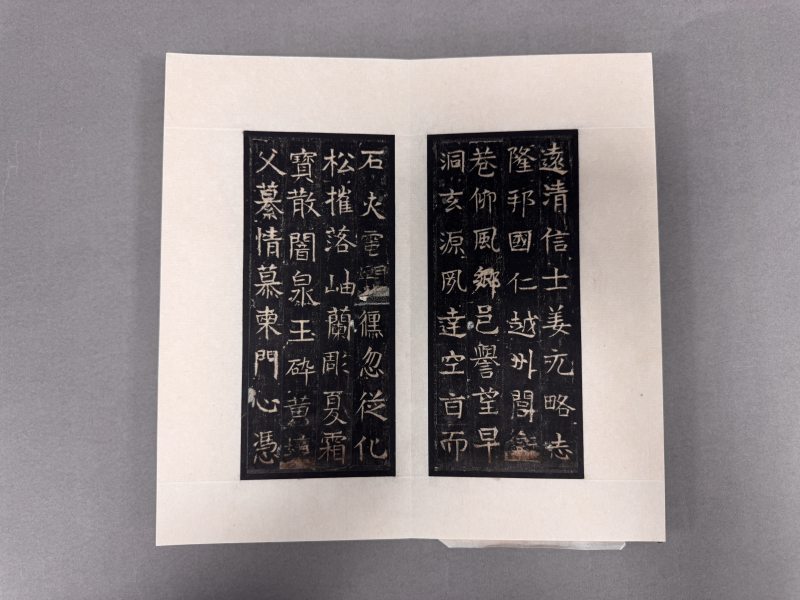 遠清信士姜元略志
隆邦國仁越州閭
巷仰風鄉邑譽望早
洞玄源夙達空旨而
石火電忽從化
松摧落岫蘭彫夏霜
寶散闇泉玉碎黃
父纂情慕東門心憑